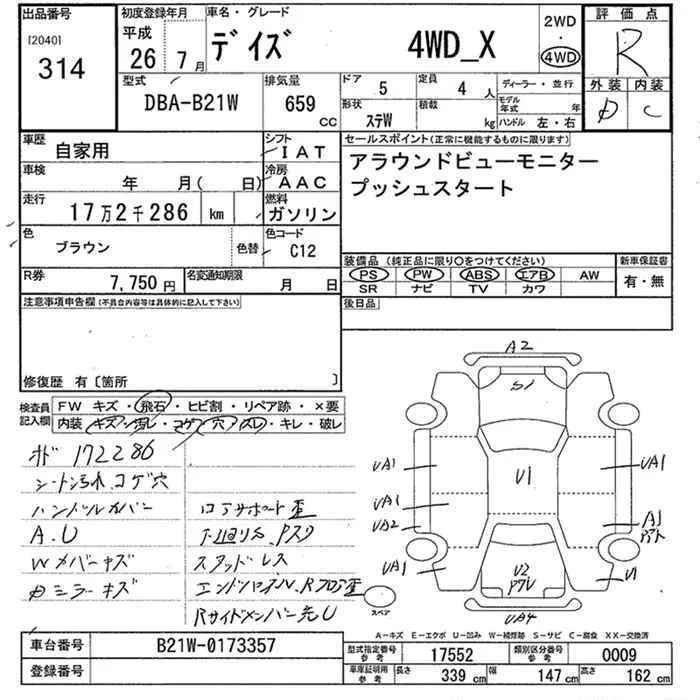 出品番号 初度登録年月 車名・グレード 2WD 評価点
[2040] 平成 デイズ 4WD_X ・ R
314 26年7月 4WD 外装 内装
型式 排気量 ドア 5 定員 4人 ディーラー・並行 D C
DBA-B21W 659 CC 形状 ステW 積載 kg モデル年式 年
ハンドル 左・右
車歴 自家用 シフト IAT セールスポイント(正常に機能するものに限ります)
車検 年 月( 日) 冷房 AAC アラウンドビューモニター
走行 17万2千286 km 燃料 ガソリン プッシュスタート
色 ブラウン 色替 色コード C12
装備品 (純正品に限り○をつけてください) 新車保証書
R券 7,750円 名変通知期限 月 日 PS PW ABS エアB AW 有・無
SR ナビ TV カワ
注意事項申告欄(不具合内容等は具体的に記入して下さい) 後日品
修復歴 有〔箇所 〕
検査員記入欄 FW キズ・飛石・ヒビ割・リペア跡・×要
内装・キズ・汚レ・コゲ・穴・スレ・キレ・破レ
172286
シート汚れ、コゲ穴
ハンドルカバー コアサポート歪
A.U 下廻りサ、Pスク
Wメバーキズ スタッドレス
Dミラーキズ エンドパネル、Rフロア歪
Rサイドメンバー先U
A2
S1
UA1 U1 UA1
UA1
UA2 A1
UA1 U2 U1
スペア UA4
A―キズ E―エクボ U―凹み W―補修跡 S―サビ C―腐食 XX―交換済
車台番号 B21W-0173357 型式指定番号 参考 17552 類別区分番号 参考 0009
登録番号 車庫証明用 参考 長さ 339 cm 幅 147 cm 高さ 162 cm